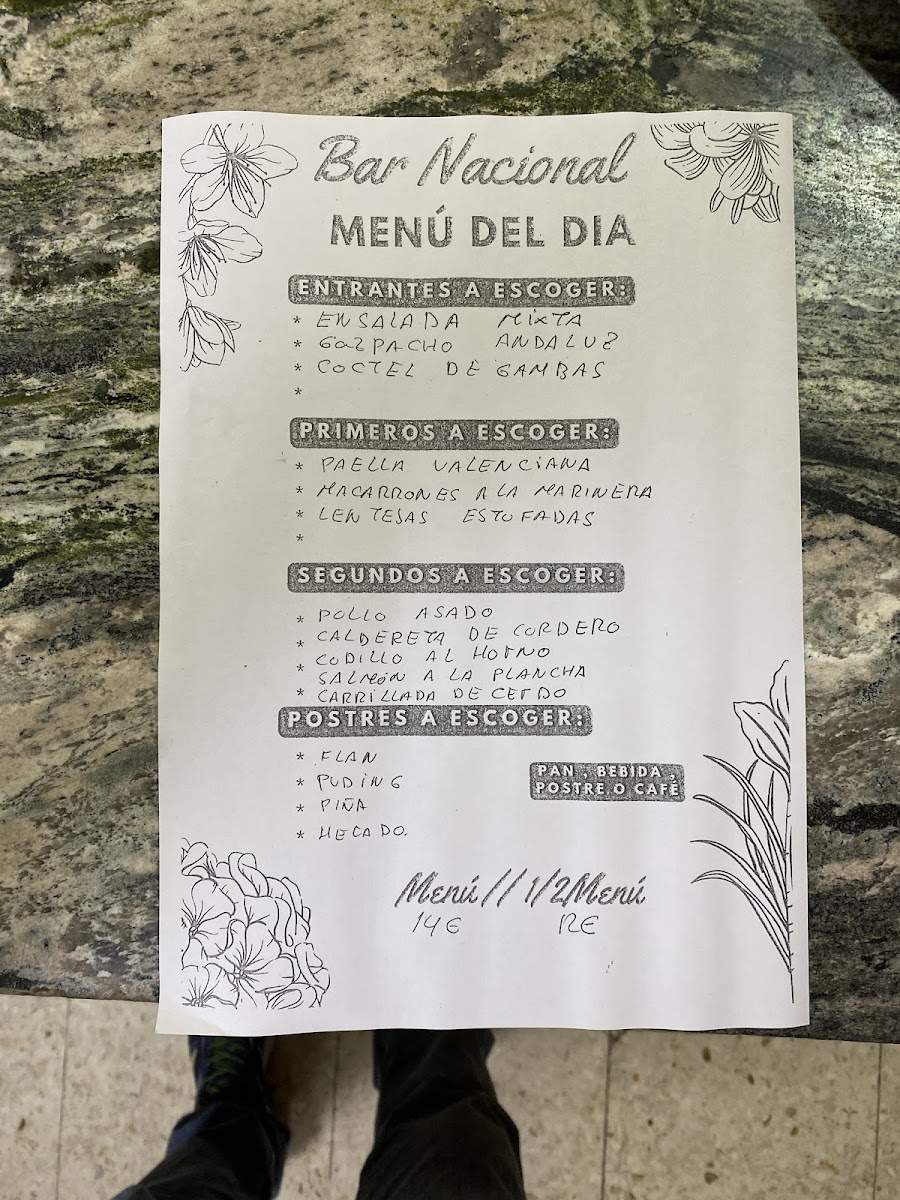 Bar Nacional
MENÚ DEL DIA
ENTRANTES A ESCOGER:
* ENSALADA MIXTA
* GAZPACHO ANDALUZ
* COCTEL DE GAMBAS
*
PRIMEROS A ESCOGER:
* PAELLA VALENCIANA
* MACARRONES A LA MARINERA
* LENTEJAS ESTOFADAS
*
SEGUNDOS A ESCOGER:
* POLLO ASADO
* CALDERETA DE CORDERO
* CODILLO AL HORNO
SALMÓN A LA PLANCHA
* CARRILLADA DE CERDO
POSTRES A ESCOGER:
* FLAN
* PUDING
* PIÑA
* HELADO.
PAN, BEBIDA,
POSTRE O CAFÉ
Menú // 1/2 Menú
14€